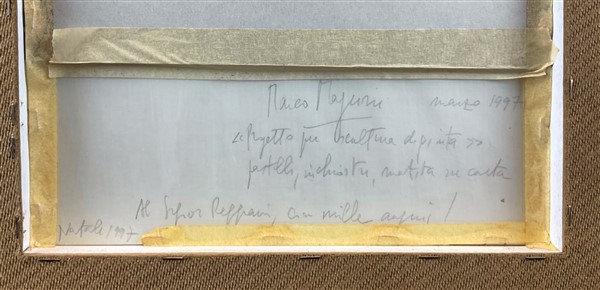 Marco Magrini marzo 1997
«Progetto per scultura dipinta»
pastelli, inchiostri, matita su carta
Al Signor con mille auguri!
Natale 1997